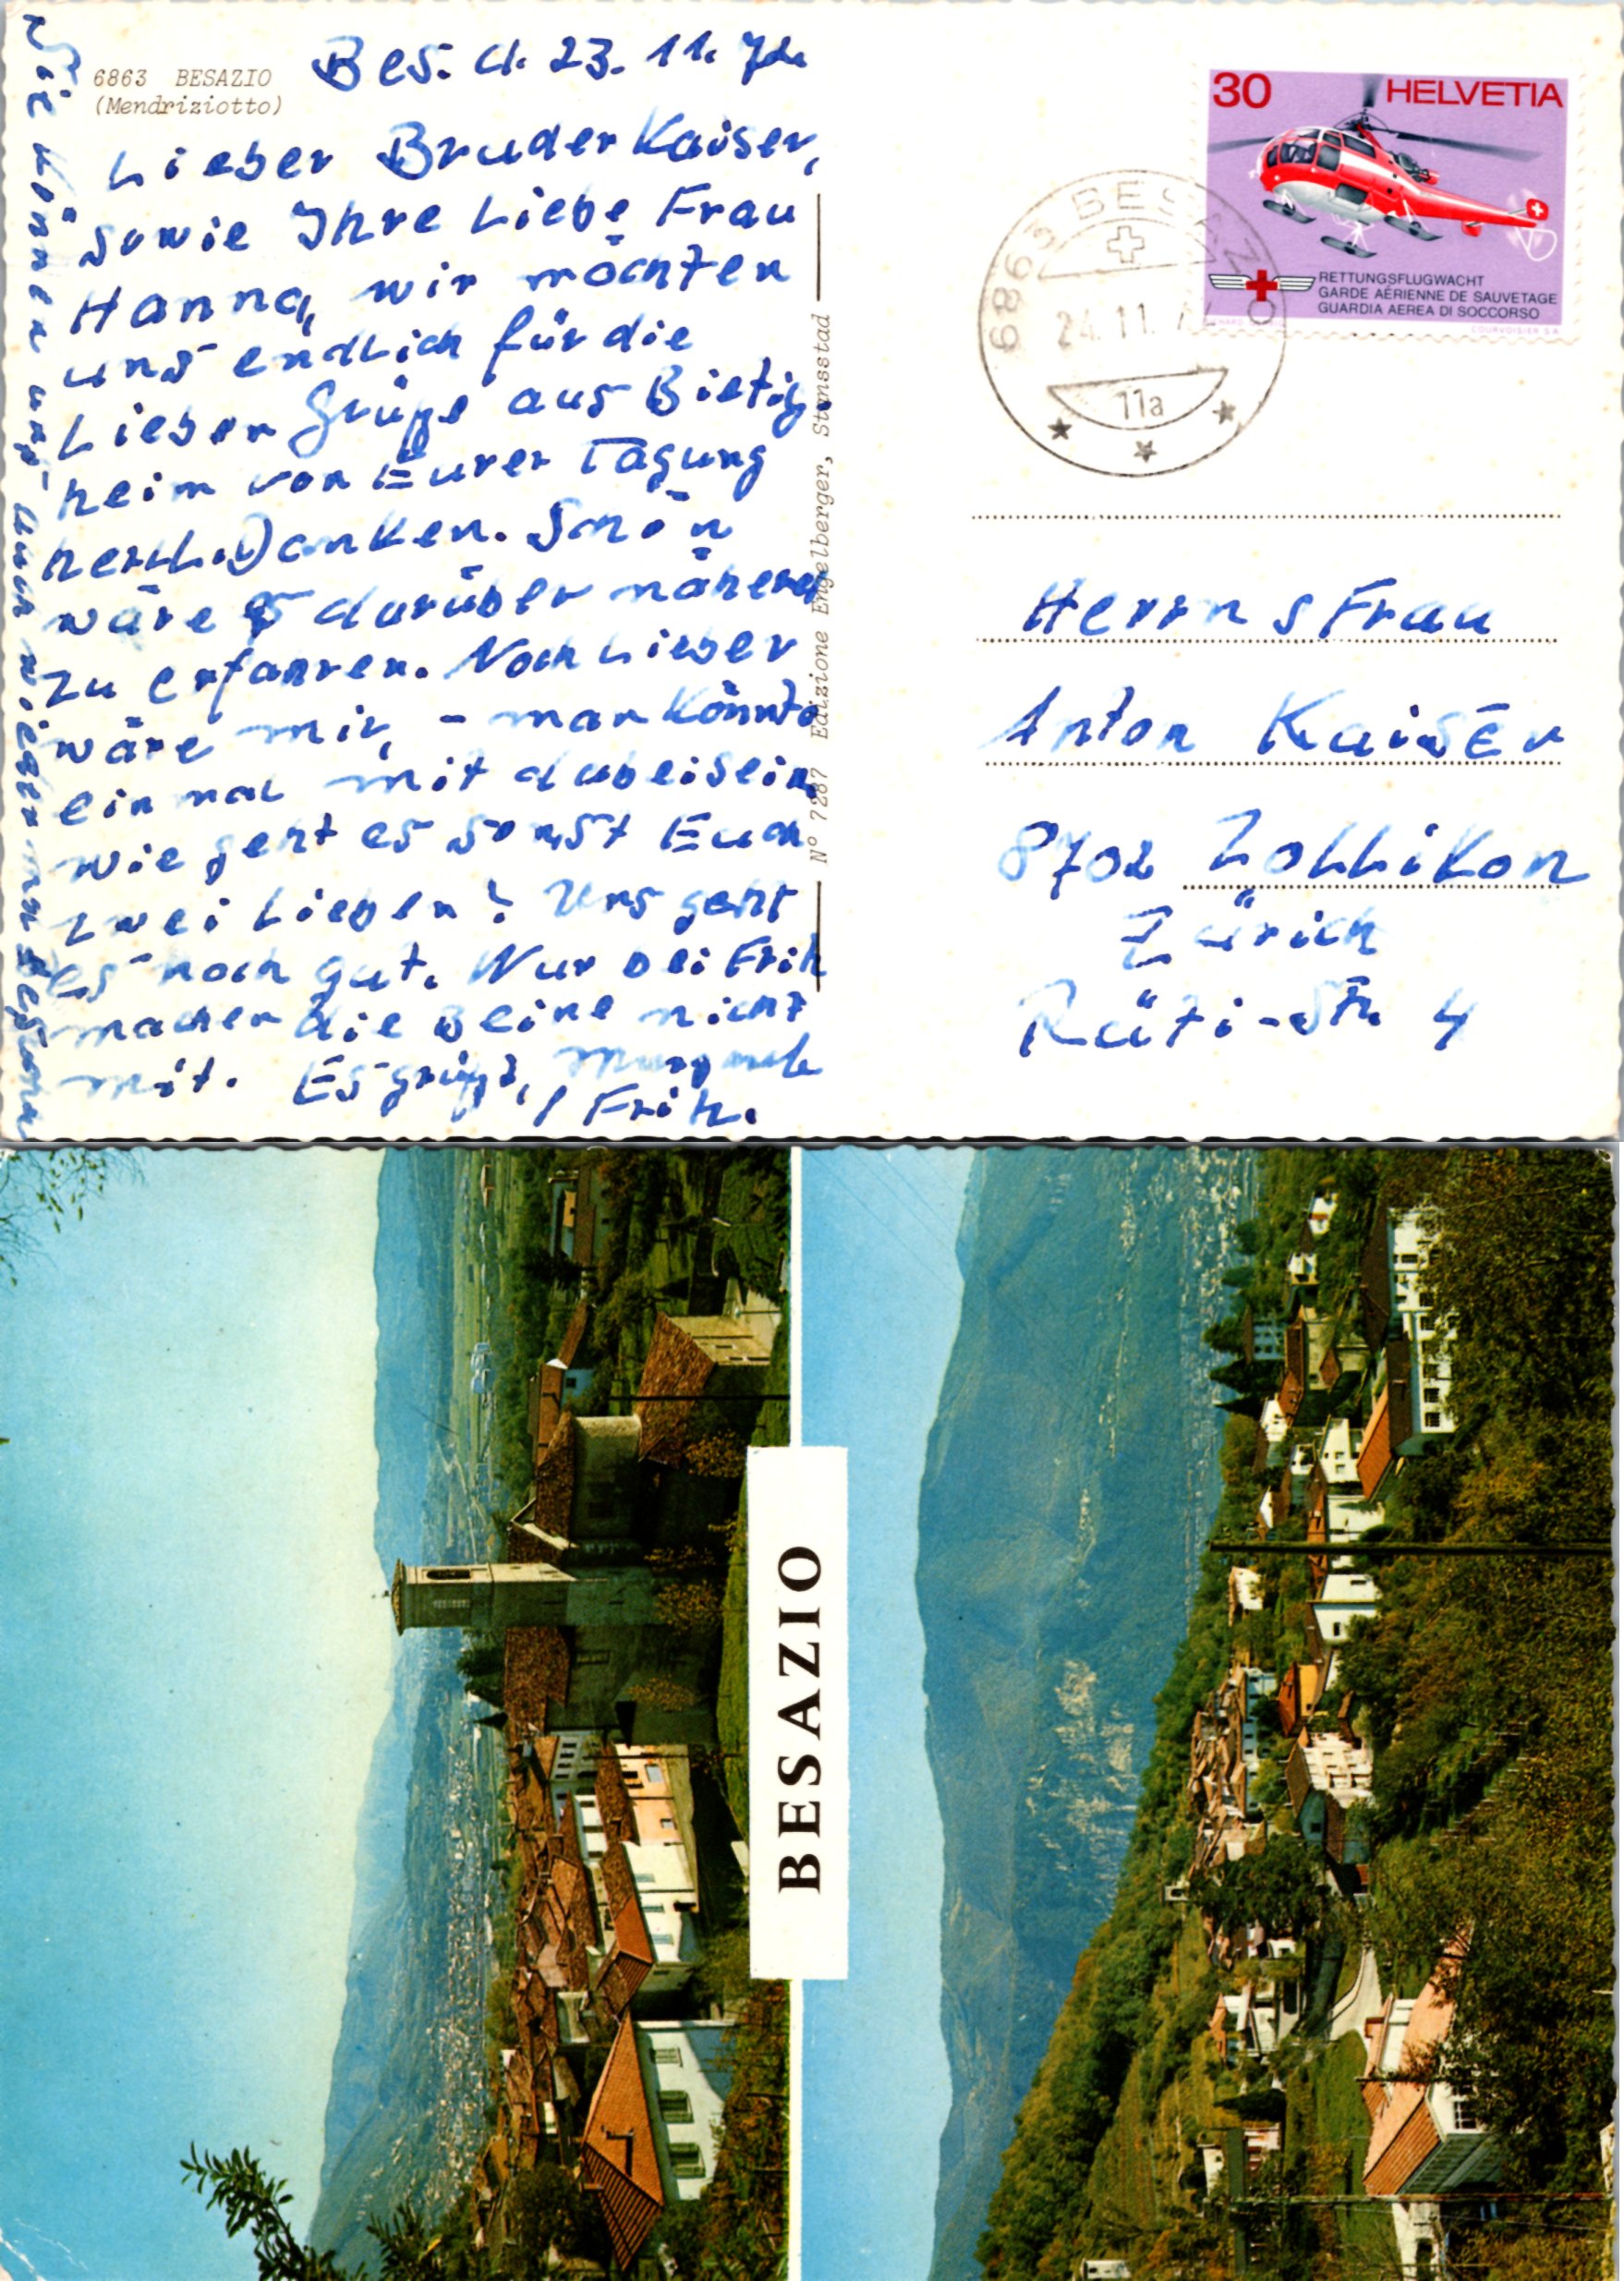 6863 BESAZIO
(Mendriziotto)
Bes. d. 23. 11. 72.
Lieber Bruder Kaiser,
sowie Ihre Liebe Frau
Hanna, wir möchten
uns endlich für die
Lieben Grüße aus Bietig.
heim von Eurer Tagung
herzl. Danken. Schön
wäre es darüber näheres
zu erfahren. Noch Lieber
wäre mir, - man könnte
einmal mit dabei sein
wie geht es sonst Euch
zwei Lieben? Uns geht
es noch gut. Nur bei Fritz
machen die Beine nicht
mit. Es grüßt,
/ Fritz.
Wir können uns auch wieder mal
N° 7287 Edizione Engelberger, Stansstad
30 HELVETIA
RETTUNGSFLUGWACHT
GARDE AÉRIENNE DE SAUVETAGE
GUARDIA AEREA DI SOCCORSO
COURVOISIER S.A.
6863 BESAZIO
24.11.
11a
Herrn s Frau
Anton Kaiser
8702 Zollikon
Zürich
Rüti-Str. 4
BESAZIO